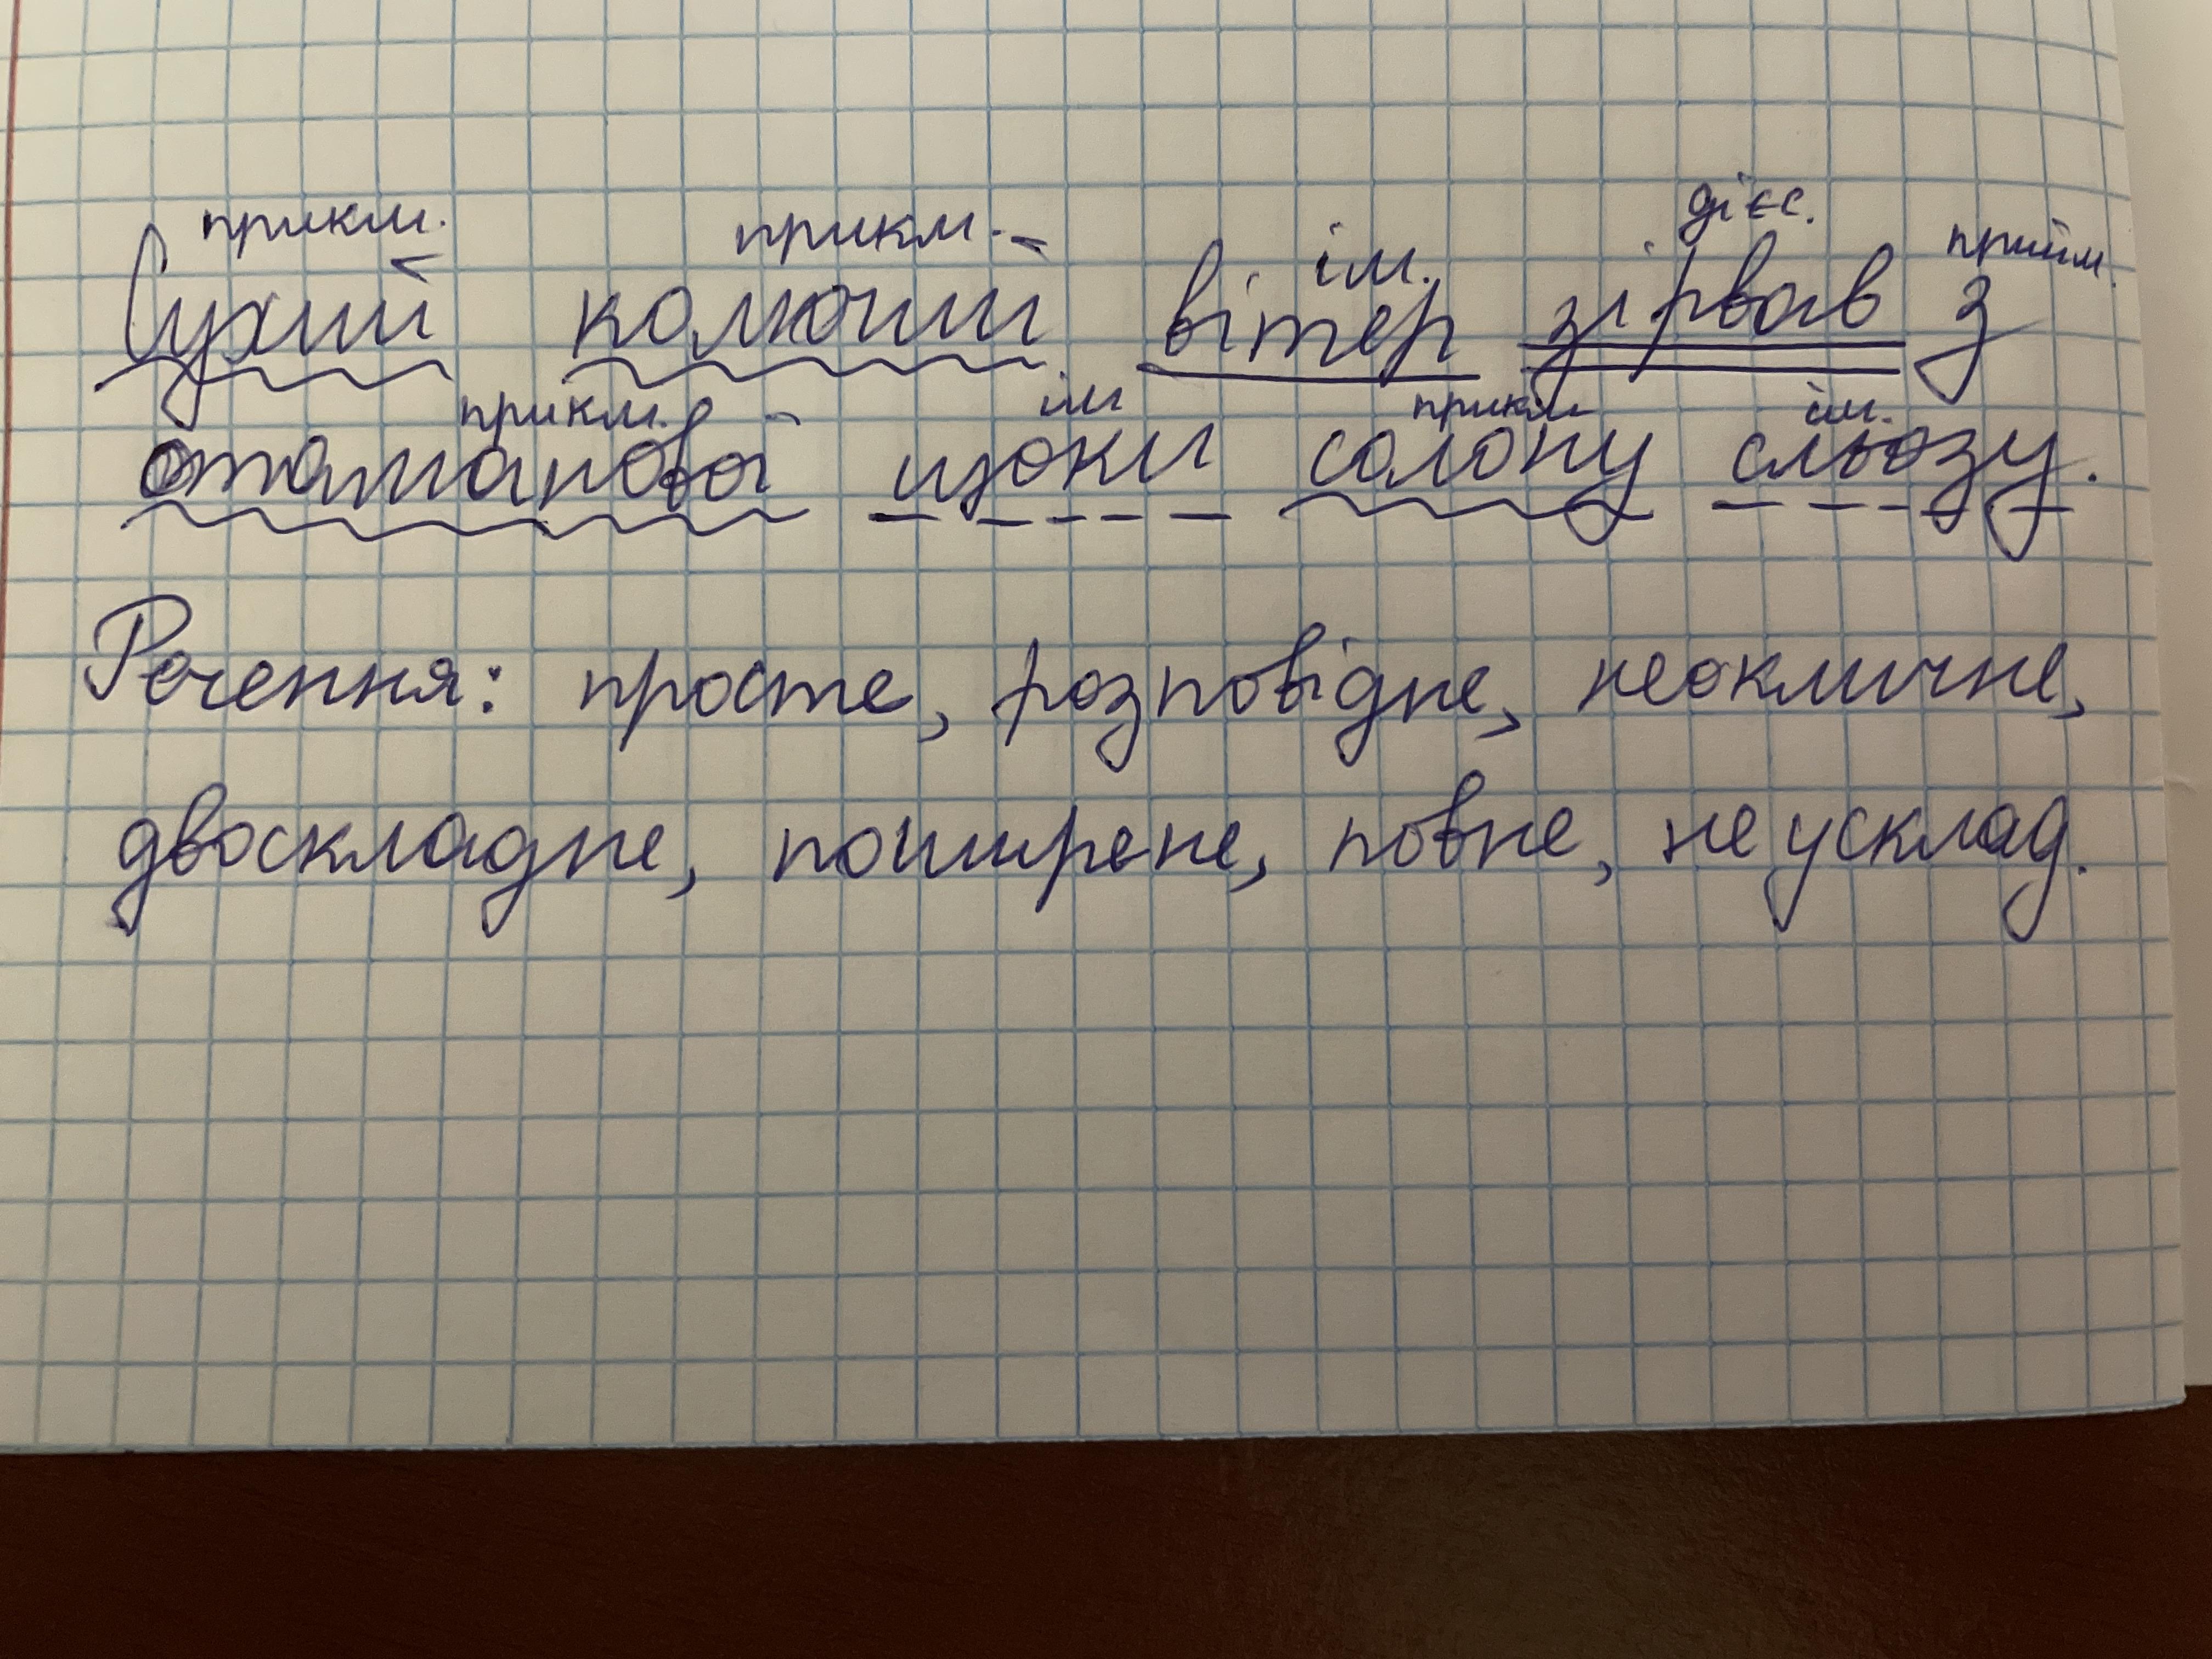 прикм. прикм. ім. дієс. прийм.
Сухий колючий вітер зірвав з
прикм. ім прикм ім.
отаманової щоки солону сльозу.
Речення: просте, розповідне, неокличне,
двоскладне, поширене, повне, неусклад.